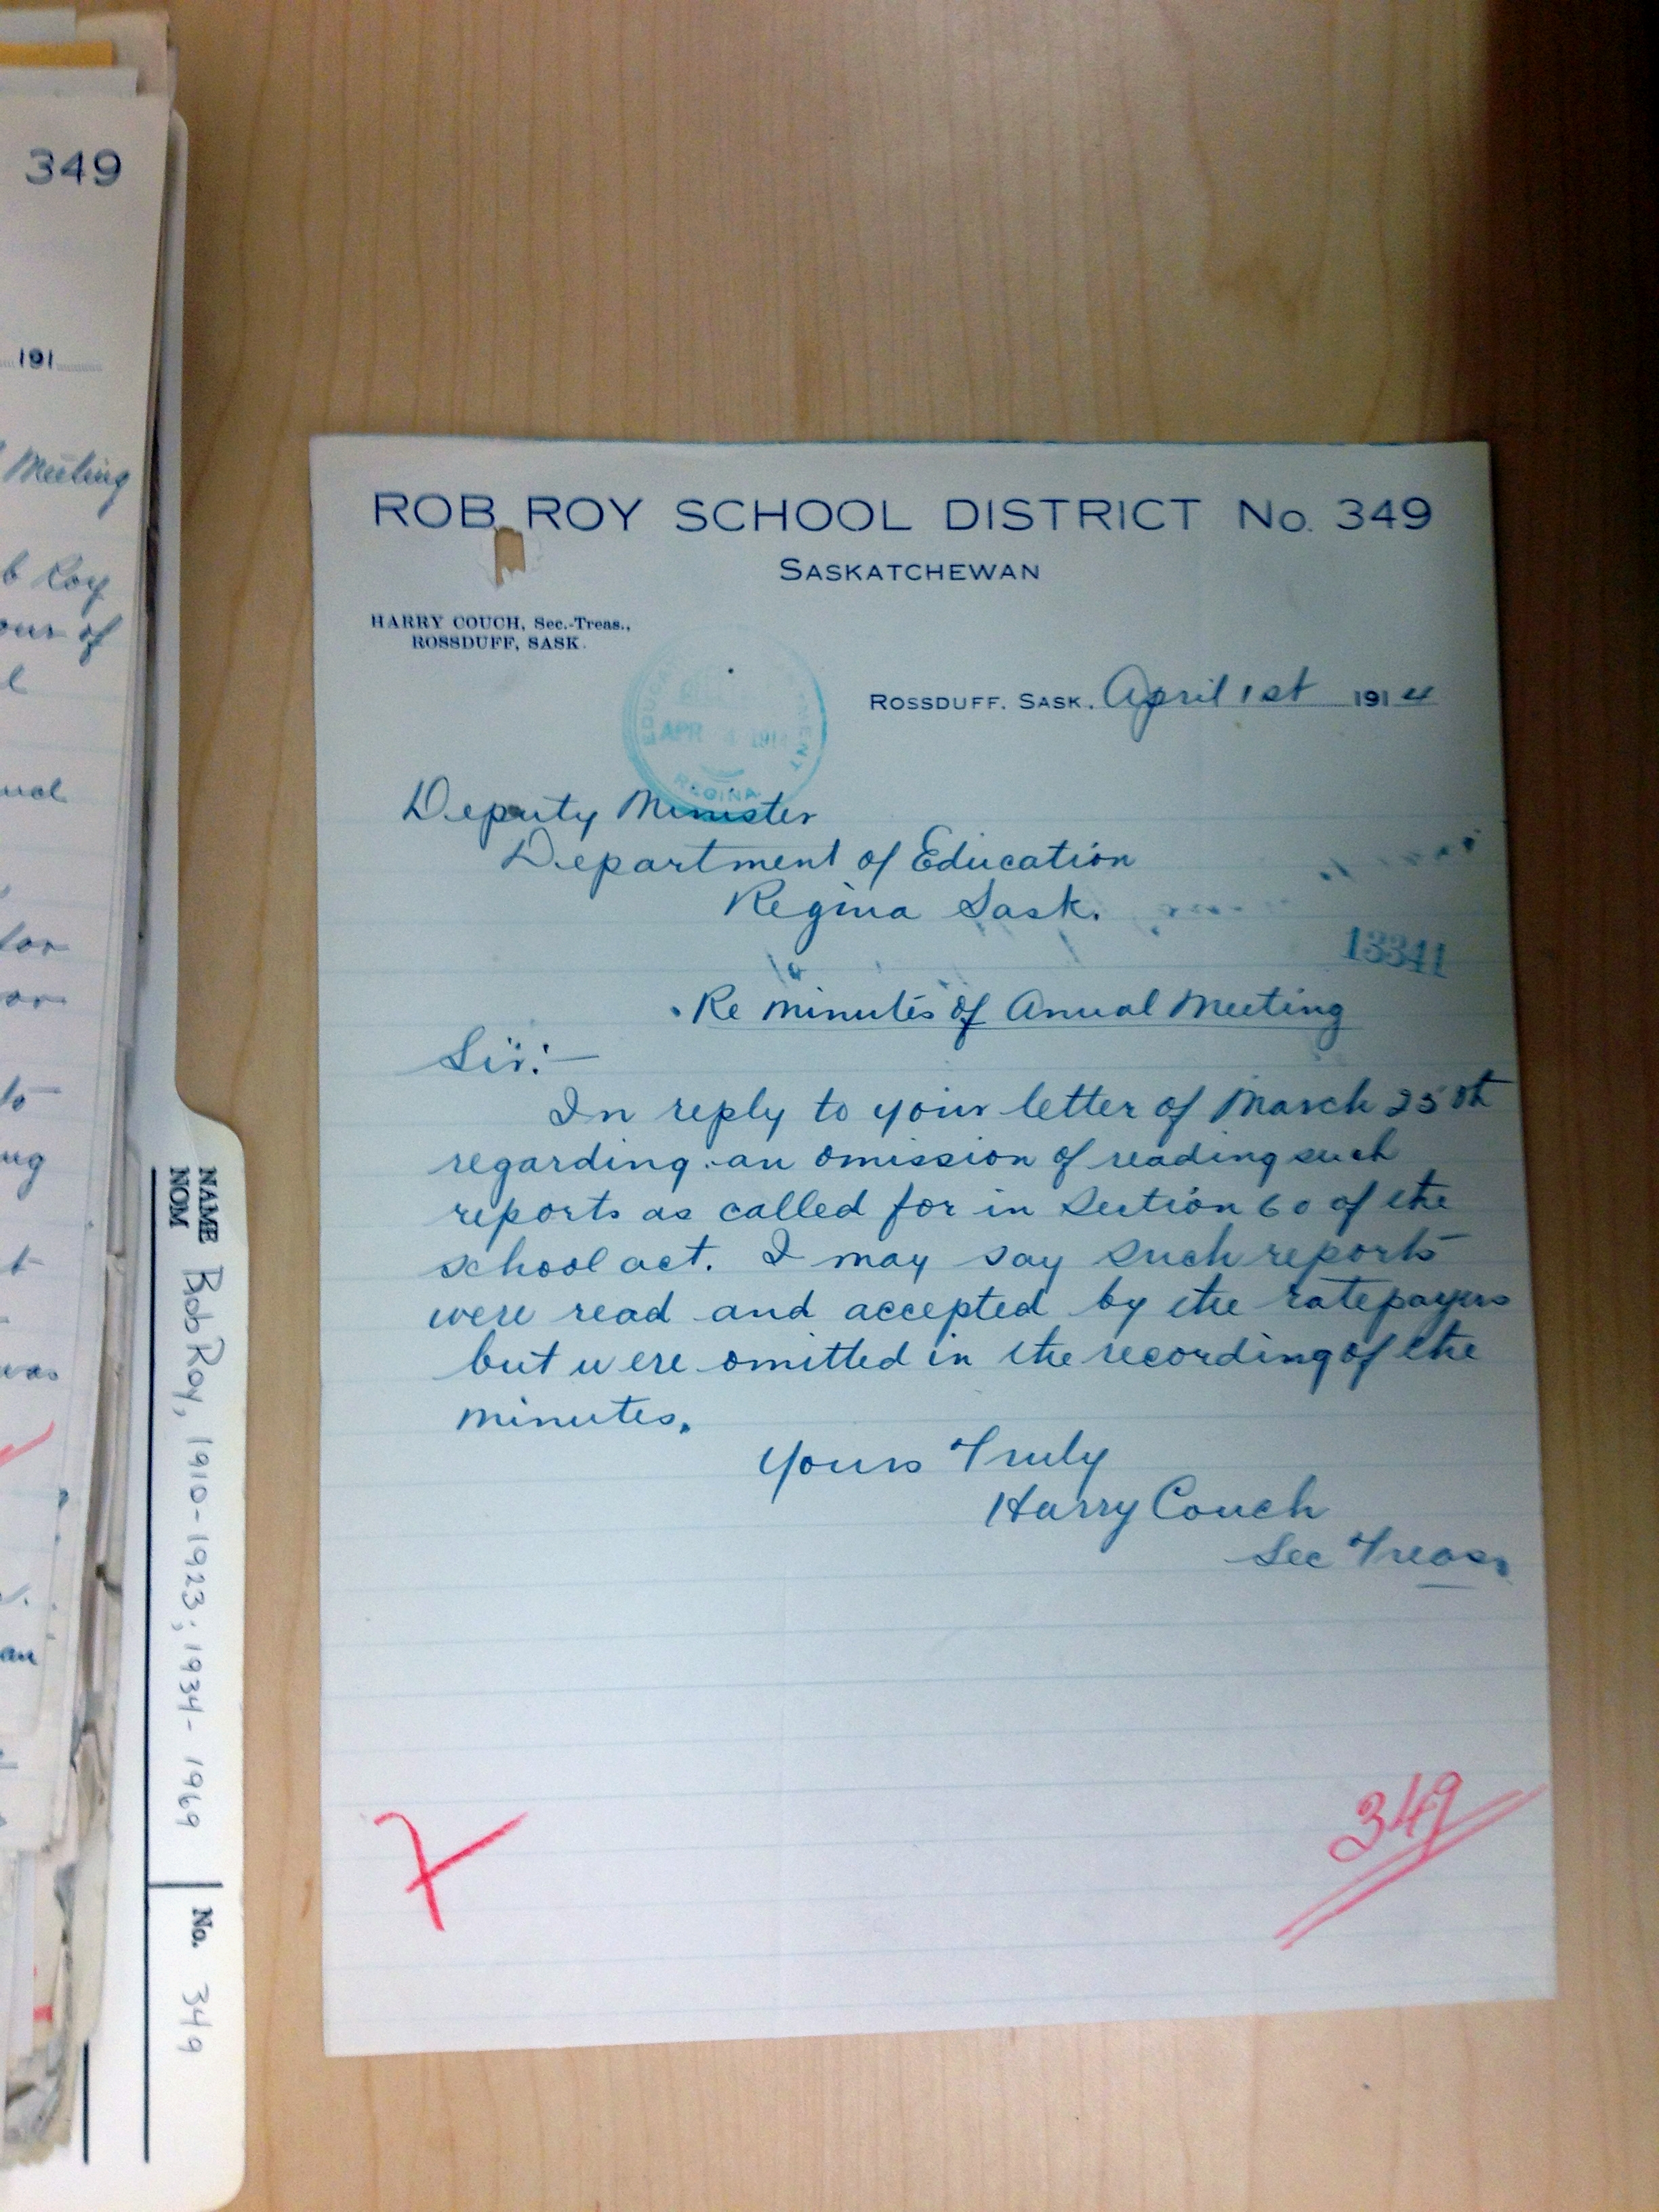 349
191
Meeting
Roy
of
was
ROB ROY SCHOOL DISTRICT No. 349
SASKATCHEWAN
HARRY COUCH, Sec.-Treas.,
ROSSDUFF, SASK.
EDUCATION DEPARTMENT
APR 4 1914
REGINA
ROSSDUFF, SASK. April 1st 1914
Deputy Minister
Department of Education
Regina Sask.
13341
Re minutes of Anual Meeting
Sir:—
In reply to your letter of March 25th
regarding an omission of reading such
reports as called for in Section 60 of the
school act. I may say such reports
were read and accepted by the ratepayers
but were omitted in the recording of the
minutes.
Yours Truly
Harry Couch
Sec Treas.
7
349
NAME
NOM
Rob Roy, 1910-1923; 1934-1969
No. 349